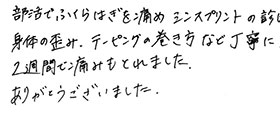 部活でふくらはぎを痛め シンスプリントの診
身体の歪み. テーピングの巻き方など丁寧に
2週間で痛みもとれました.
ありがとうございました.